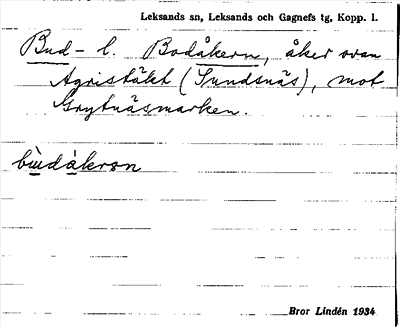 Leksands sn, Leksands och Gagnefs tg, Kopp. l.
Bud- l. Bodåkern, åker ovan
Agristäkt (Sundsnäs), mot
Grytnäsmarken.
bùdàkrən
Bror Lindén 1934